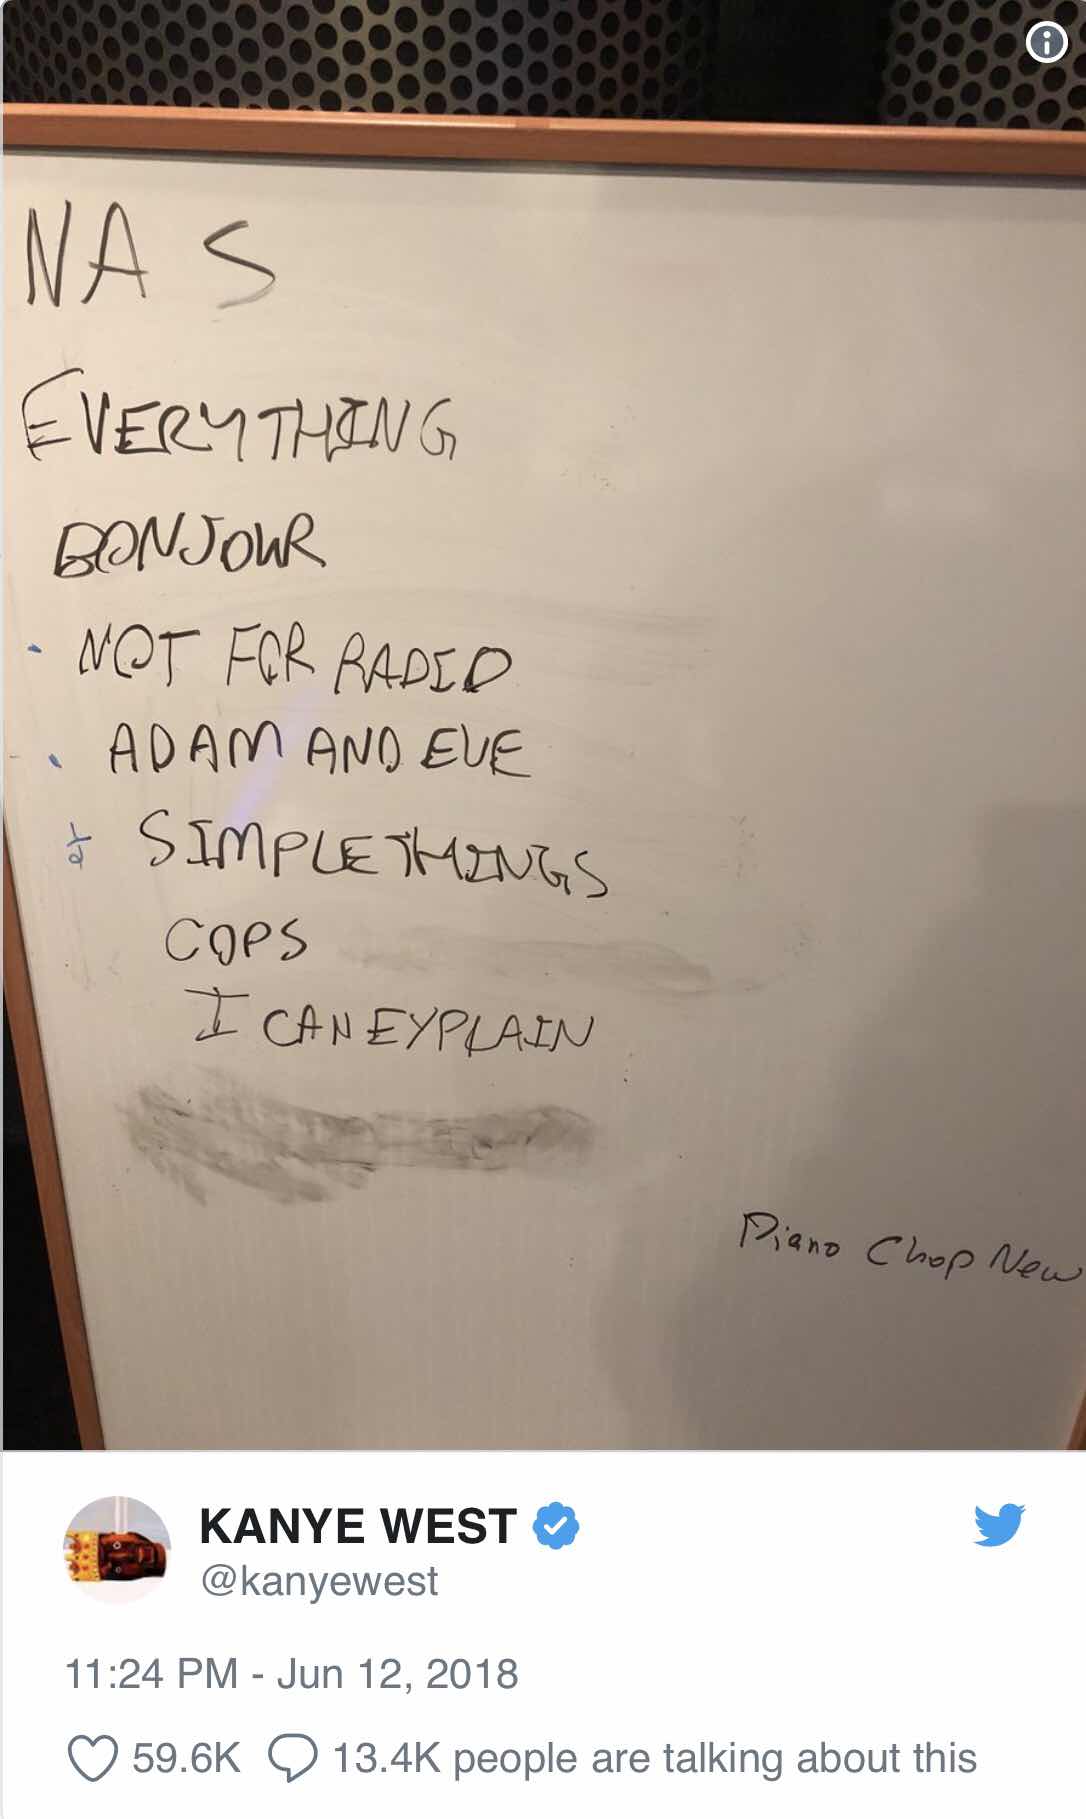 NAS
EVERYTHING
BONJOUR
NOT FOR RADIO
ADAM AND EVE
1/2 SIMPLE THINGS
COPS
I CAN EYPLAIN
Piano Chop New
KANYE WEST
@kanyewest
11:24 PM - Jun 12, 2018
59.6K 13.4K people are talking about this